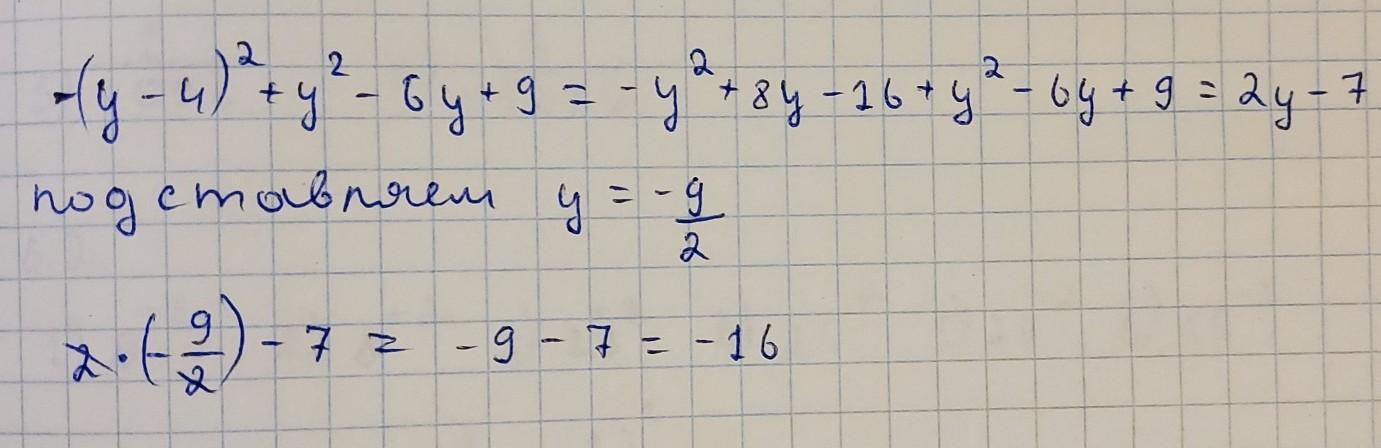 -(y - 4)² + y² - 6y + 9 = -y² + 8y - 16 + y² - 6y + 9 = 2y - 7
подставляем y = -9/2
2·(-9/2) - 7 = -9 - 7 = -16